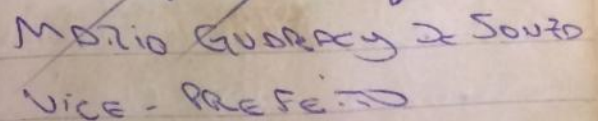 MARIO GUARACY DE SOUZA
VICE - PREFEITO